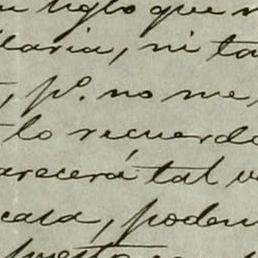 siglo que
laria, ni ta
pº. no me,
lo recuerdo
arecerá tal v
casa, podem
puesto